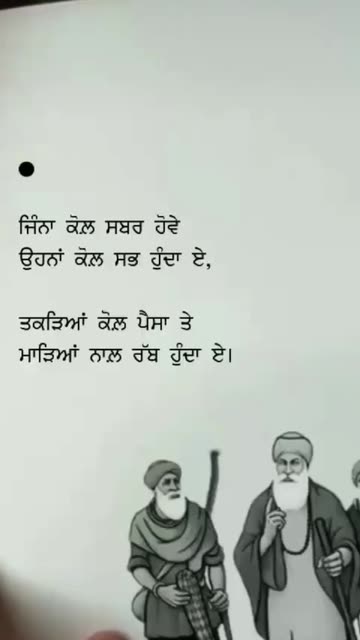 ਜਿੰਨਾ ਕੋਲ਼ ਸਬਰ ਹੋਵੇ
ਉਹਨਾਂ ਕੋਲ਼ ਸਭ ਹੁੰਦਾ ਏ,
ਤਕੜਿਆਂ ਕੋਲ਼ ਪੈਸਾ ਤੇ
ਮਾੜਿਆਂ ਨਾਲ਼ ਰੱਬ ਹੁੰਦਾ ਏ।